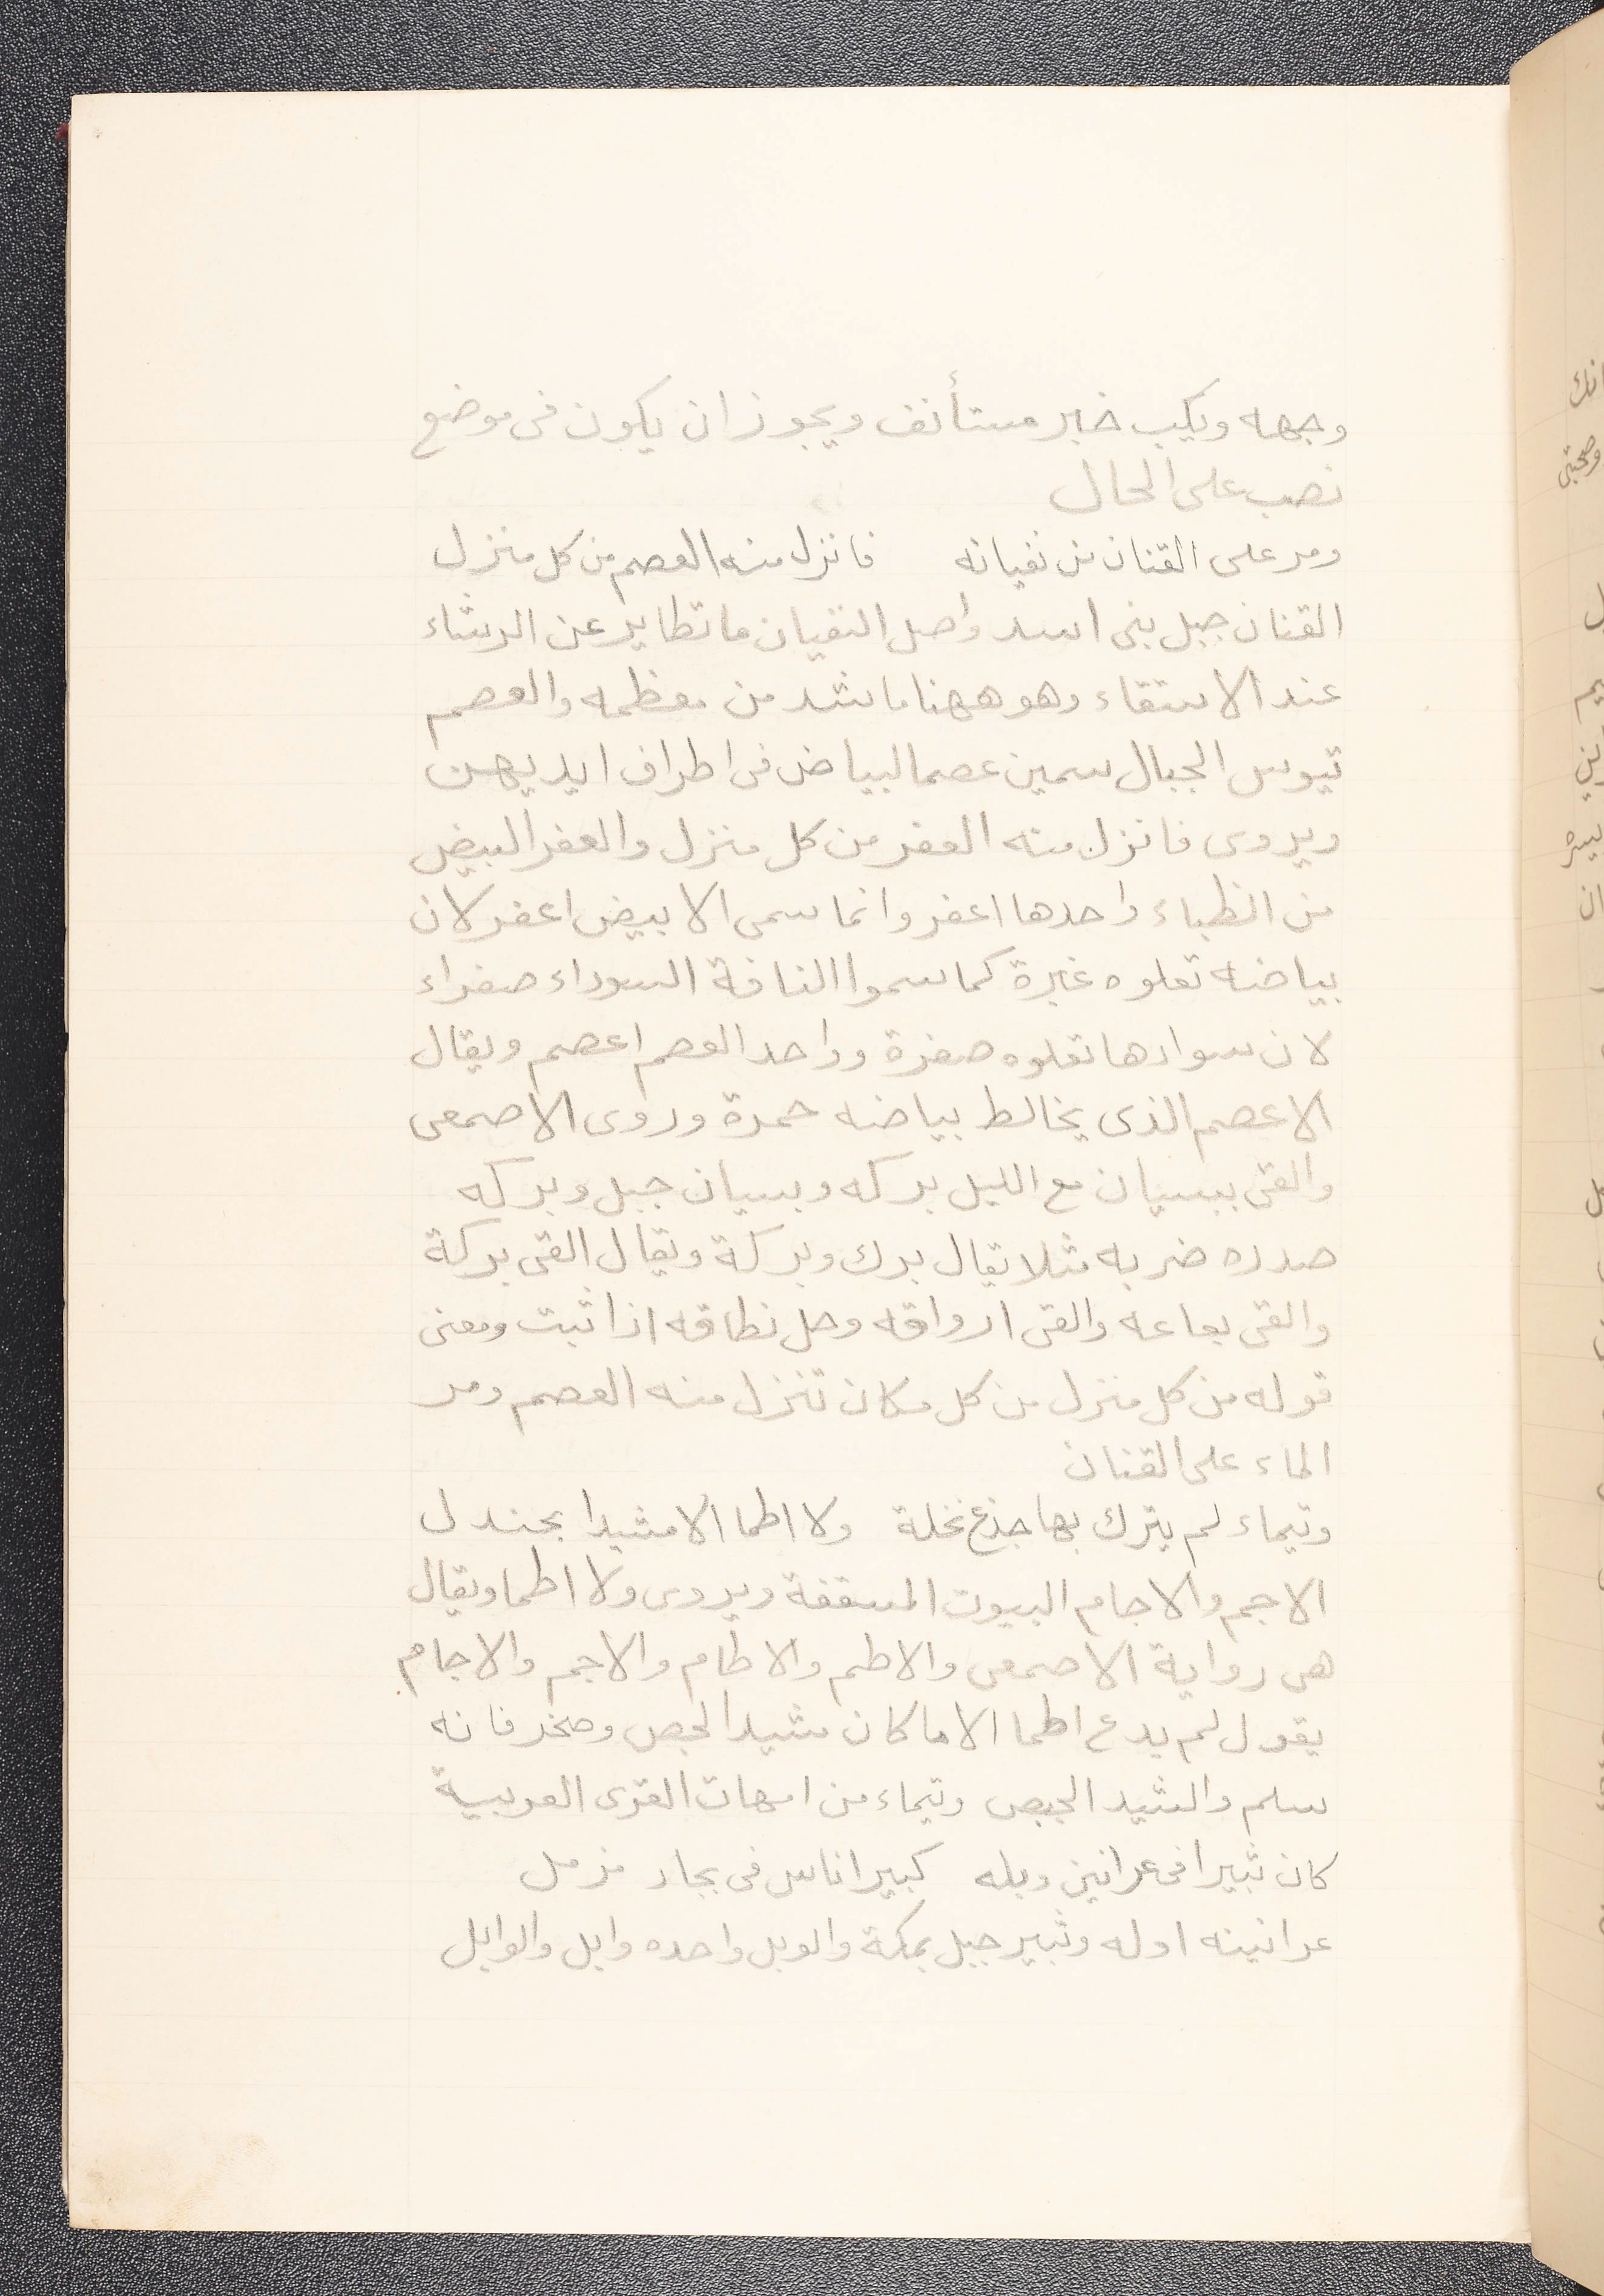 وجهه ويكب خبر مستأنف ويجوز ان يكون فى موضع
نصب على الحال
ومر على القنان من نفيانه فانزل منه العصم من كل منزل
القنان جبل بنى اسد واصل النفيان ما تطاير عن الرشاء
عند الاستقاء وهو ههنا ما شد من معظمه والعصم
تيوس الجبال سمين عصما لبياض فى اطراف ايديهن
ويروى فانزل منه العفر من كل منزل والعفر البيض
من الظباء واحدها اعفر وانما سمى الابيض اعفر لان
بياضه تعلوه غبرة كما سموا الناقة السوداء صفراء
لان سوادها تعلوه صفرة وواحد العصم اعصم ويقال
الاعصم الذى يخالط بياضه حمرة وروى الاصمعى
والقى ببسيان مع الليل بركه وبسيان جبل وبركه
صدره ضربه مثلا يقال برك وبركة ويقال القى بركة
والقى بعاعه والقى ارواقه وحل نطاقه اذا ثبت ومعنى
قوله من كل منزل من كل مكان تنزل منه العصم ومر
الماء على القنان
وتيماء لم يترك بها جذع نخلة ولا اطما الا مشيدا بجندل
الاجم والاجام البيوت المسقفة ويروى ولا اطما ويقال
هى رواية الاصمعى والاطم والاطام والاجم والاجام
يقول لم يدع اطما الا ما كان مشيدا لجص وصخر فانه
سلم والشيد الجص وتيماء من امهات القرى العربية
كان ثبيرا فى عرانين وبله كبير اناس فى بجاد مزمل
عرانينه اوله وثبير جبل بمكة والوبل واحده وابل والوابل